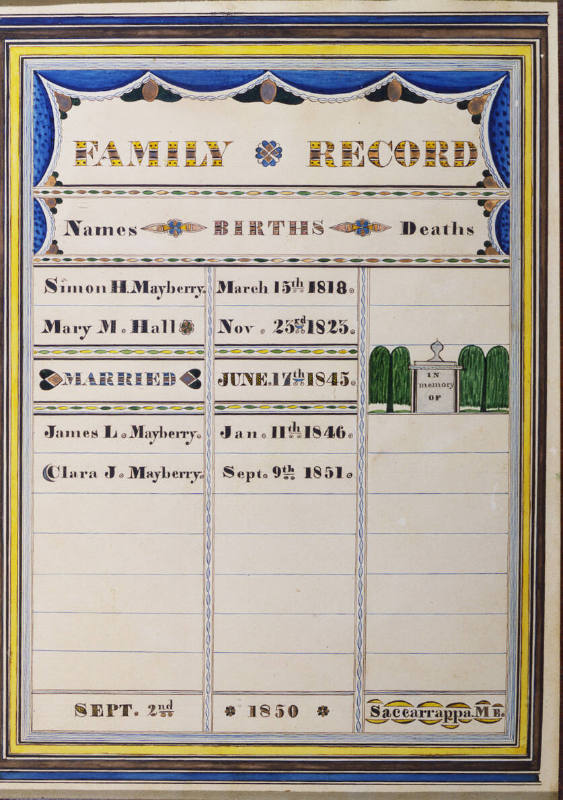 FAMILY RECORD
Names BIRTHS Deaths
Simon H. Mayberry. March 15th 1818.
Mary M. Hall Nov. 23rd 1823.
MARRIED JUNE. 17th 1845.
IN
memory
OF
James L. Mayberry. Jan. 11th 1846.
Clara J. Mayberry. Sept. 9th 1851.
SEPT. 2nd 1850 Saccarrappa. ME.